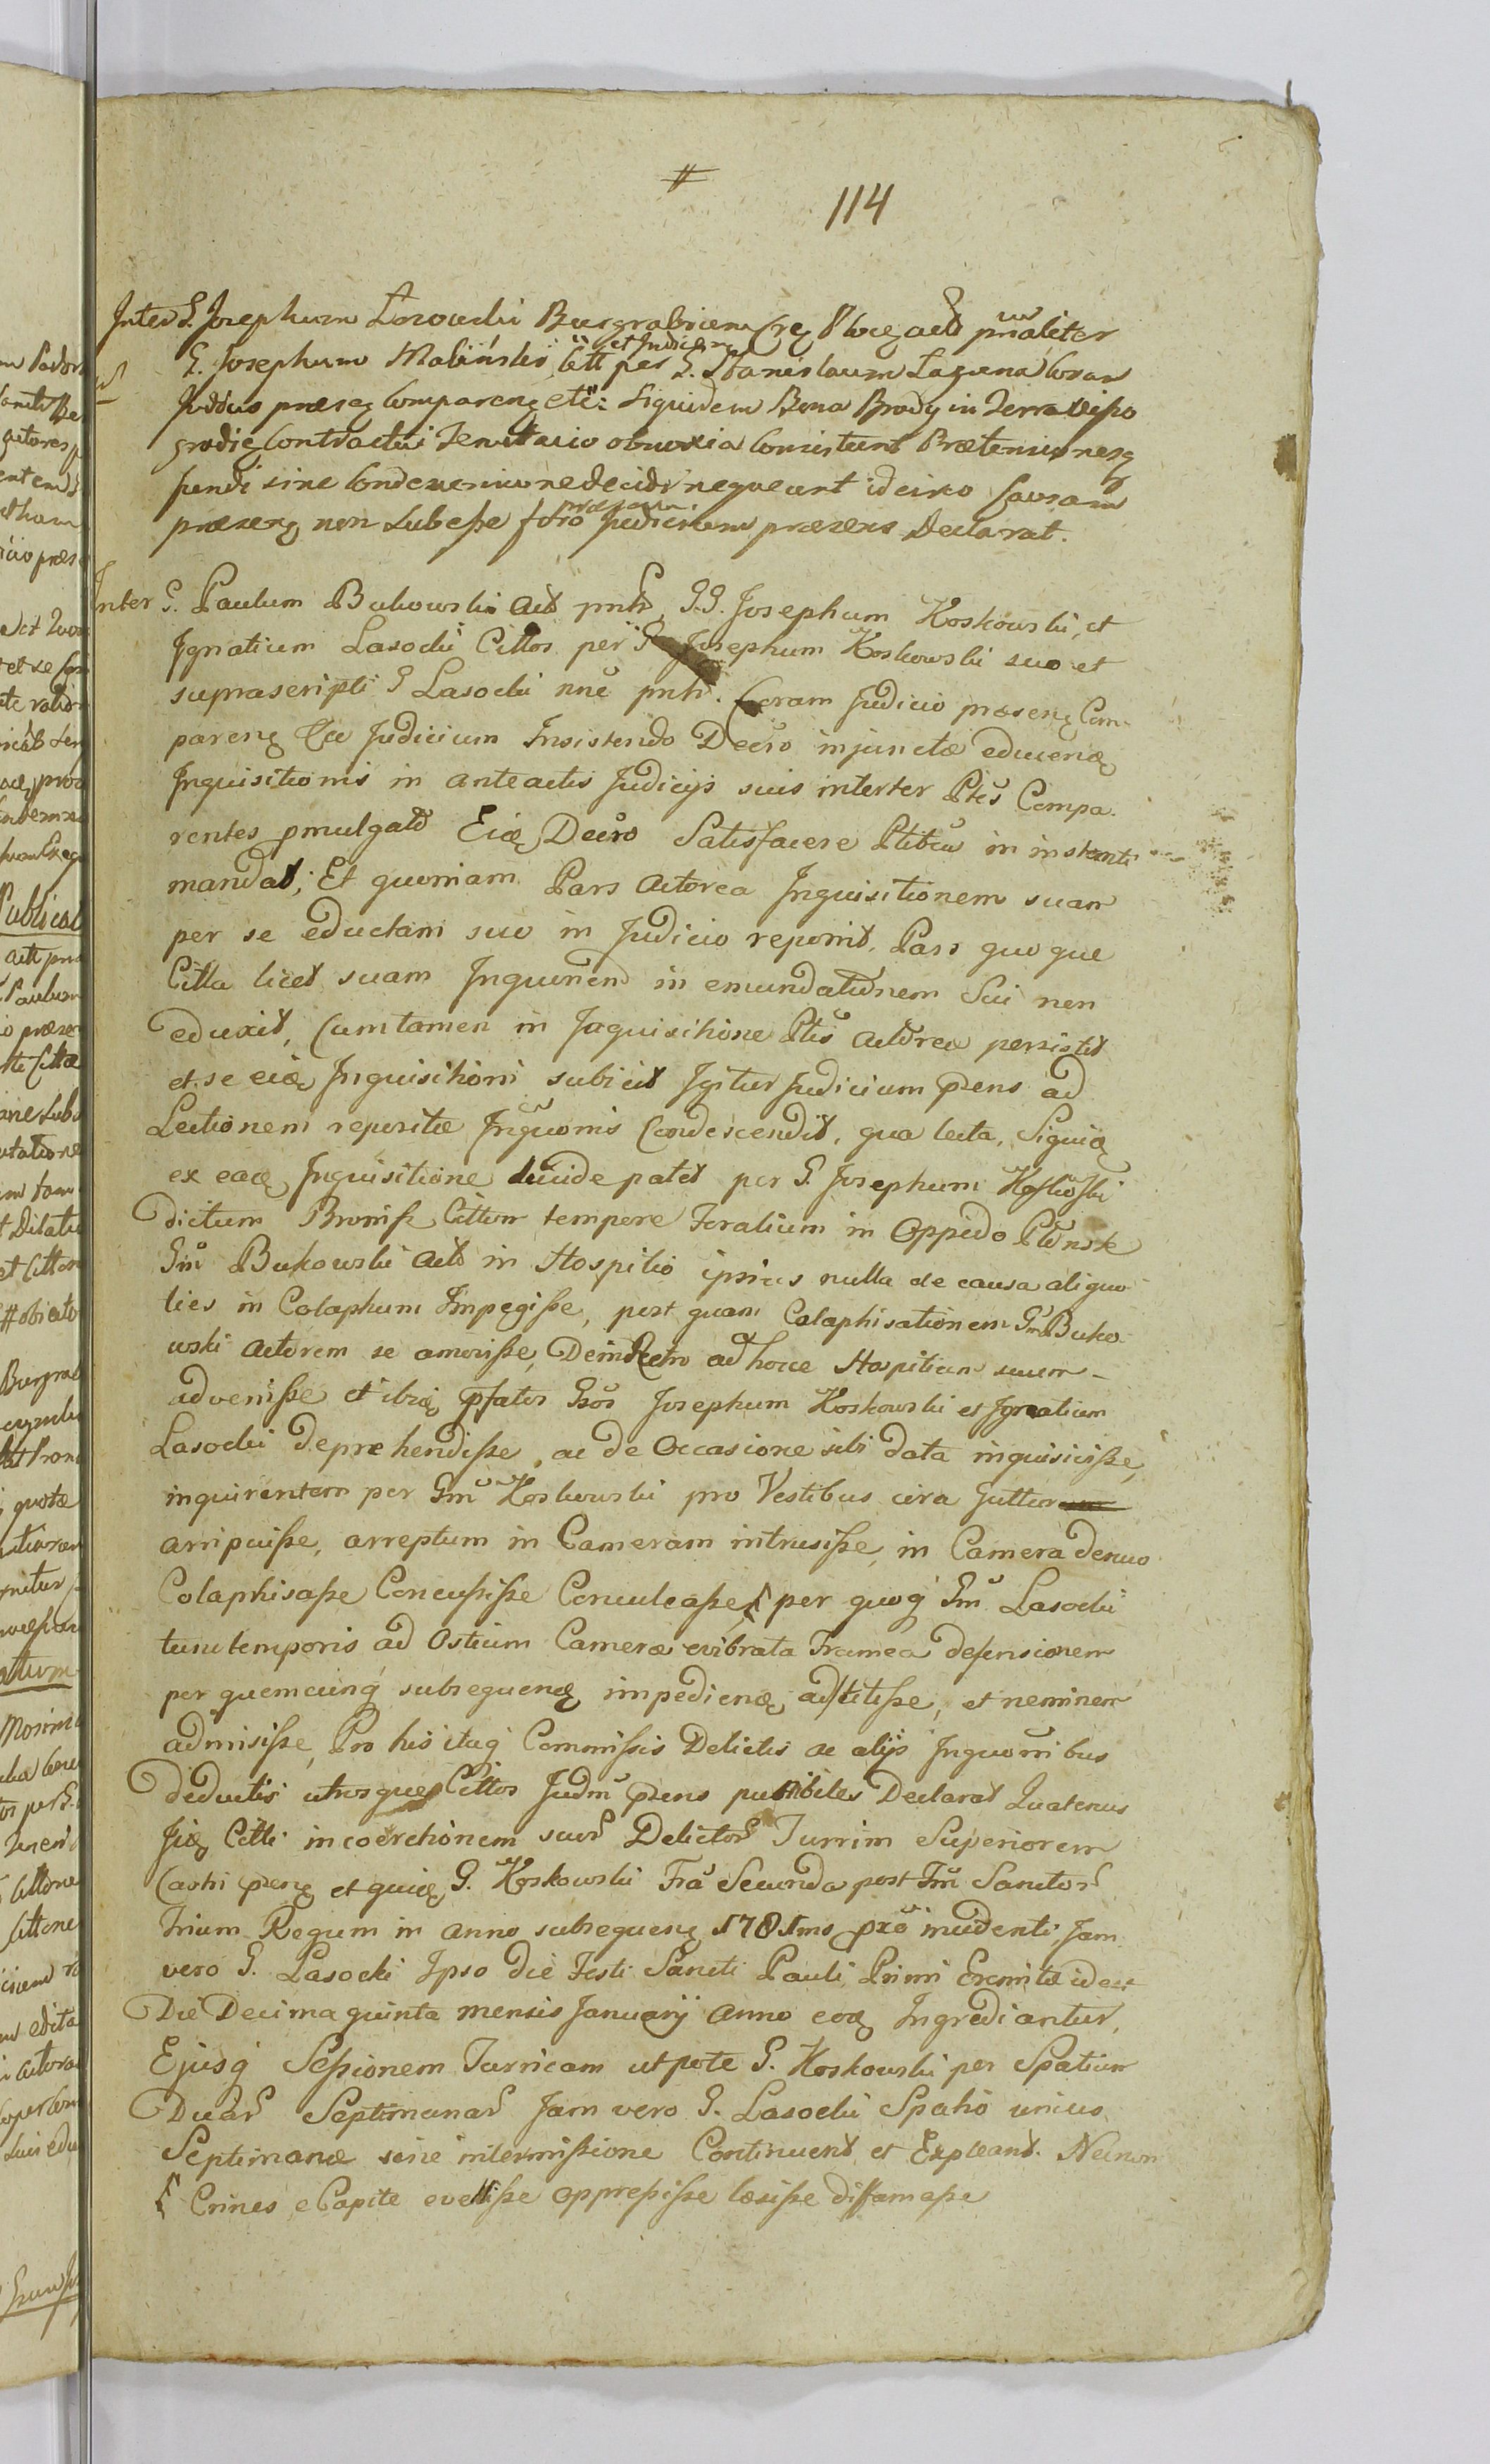 114
Inter G. Josephum Burgrabium Crę Ploceň actt pnaliter et
G. Josephum Maliński Citt et Judicem per G. Stanislaum
Juddus præseň Compareň etc: Siquidem Bona Brody in Terra Viszo
grodię Contractui Tenutario obnoxia Consistunt Prætensionesq
fundi sine Condescensione decidi nequeunt idcirco Causam
præsenę non Subeße foro præsenti Judicium præsens Declarat.
Inter G. Paulum Bukowski Act pnlt, G.G. Josephum Koskowski, et
Ignatium Lasocki Cittos per G Josephum Koskowski suo et
suprascripti G Lasocki nňe pnlt. Coram Judicio præsenę Com-
parenę Qæ Judicium Insistendo Decro injunctæ educenę
Inquisitionis in anteactis Judicijs suis interter Ptes Compa-
rentes pmulgato Eidę Decro Satisfacere Ptibus in instanti
mandat; Et quoniam Pars Actorea Inquisitionem suam
per se eductam suo in Judicio reponit, Pars quoque
Citta licet suam Inquonem in emundationem Sui non
eduxit, Cum tamen in Inquisitione Ptis Actoreæ persistit
et se eidę Inquisitioni subicit Igitur Judicium præns ad
Lectionem repositæ Inquonis Condescendit, qua lecta, Siquidę
ex eadę Inquisitione lucide patet per G. Josephum Koskowski
dictum Bronisz Cittum tempore Foralium in Oppido Płonsk
Gm Bukowski Act in Hospitio ipsius nulla de causa aliquo-
ties in Colaphum Impegiße, post quam Colaphisationem Gm Buko
wski Actorem se amoviße, Dein Retro ad hocce Hospitium suum
adveniße et ibidę pfatos Gsos Josephum Koskowski et Ignatium
Lasocki deprehendiße, ac de Occasione sibi data inquisiviße,
inquirentem per Gm Koskowski pro Vestibus circa Guttur
arripuiße, arreptum in Cameram intrusiße, in Camera denuo
Colaphisaße Concußiße Conculcaße per quoq Gm Lasocki
tunc temporis ad Ostium Cameræ evibrata Framea defensionem
per quemcunq subsequenę impedienę adstitiße, et neminem
admisiße, Pro his itaq Commißis Delictis ac alijs Inquonibus
deductis utrosque Cittos Judm præns punibiles Declarat Quatenus
Jidę Citti in coerctionem suor Delictor Turrim Superiorem
Castri præsnę et quidę G. Koskowski Fra Secunda post Fm Sanctor
Trium Regum in anno subsequenę 1781mo pxe incidenti, Jam
vero G. Lasocki Ipso die Festi Sancti Pauli Primi Eremitæ idest
Die Decima quinta mensis Januarij Anno eodę Ingrediantur,
Ejusq Seßionem Turricam utpote G. Koskowski per Spatium
Duar Septimanar Jam vero G. Lasocki Spatio unius
Septimanæ sine intermißione Continuent et Expleant. Necnon
Crines e Capite evelliße oppreßiße læsiße diffamaße